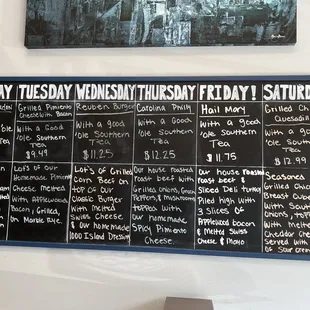 AY
TUESDAY
WEDNESDAY
THURSDAY
FRIDAY!
SATUR
Grilled Pimiento
Cheese with Bacon
With a Good
'ole Southern
Tea
$9.49
Reuben Burger
With a good
'ole Southern
Tea
$11.25
Carolina Philly
With a Good
'ole Southern
Tea
$12.25
Hail Mary
With a good
'ole Southern
Tea
$11.75
Grilled Ch
Quesadill
With a go
'ole South
Tea
$12.99
Lot's of our
Homemade Pimiento
Cheese melted
with Applewood
Bacon, Grilled,
on Marble Rye.
Lot's of Grilled
Corn Beef on
top of our
Classic Burger
With Melted
Swiss Cheese
& our homemade
1000 Island Dressing
Our house roasted
roast beef with
Grilled onions, Green
Peppers, & mushrooms
topped with
our homemade
Spicy Pimiento
Cheese.
Our house roasted
roast beef &
Sliced Deli turkey
Piled high with
3 Slices of
Applewood bacon
& melted Swiss
Cheese & Mayo
Seasoned
Grilled Chick
Breast Cube
With Sout
Onions, topp
With Melte
Cheddar Chee
Served with
of Sour crea